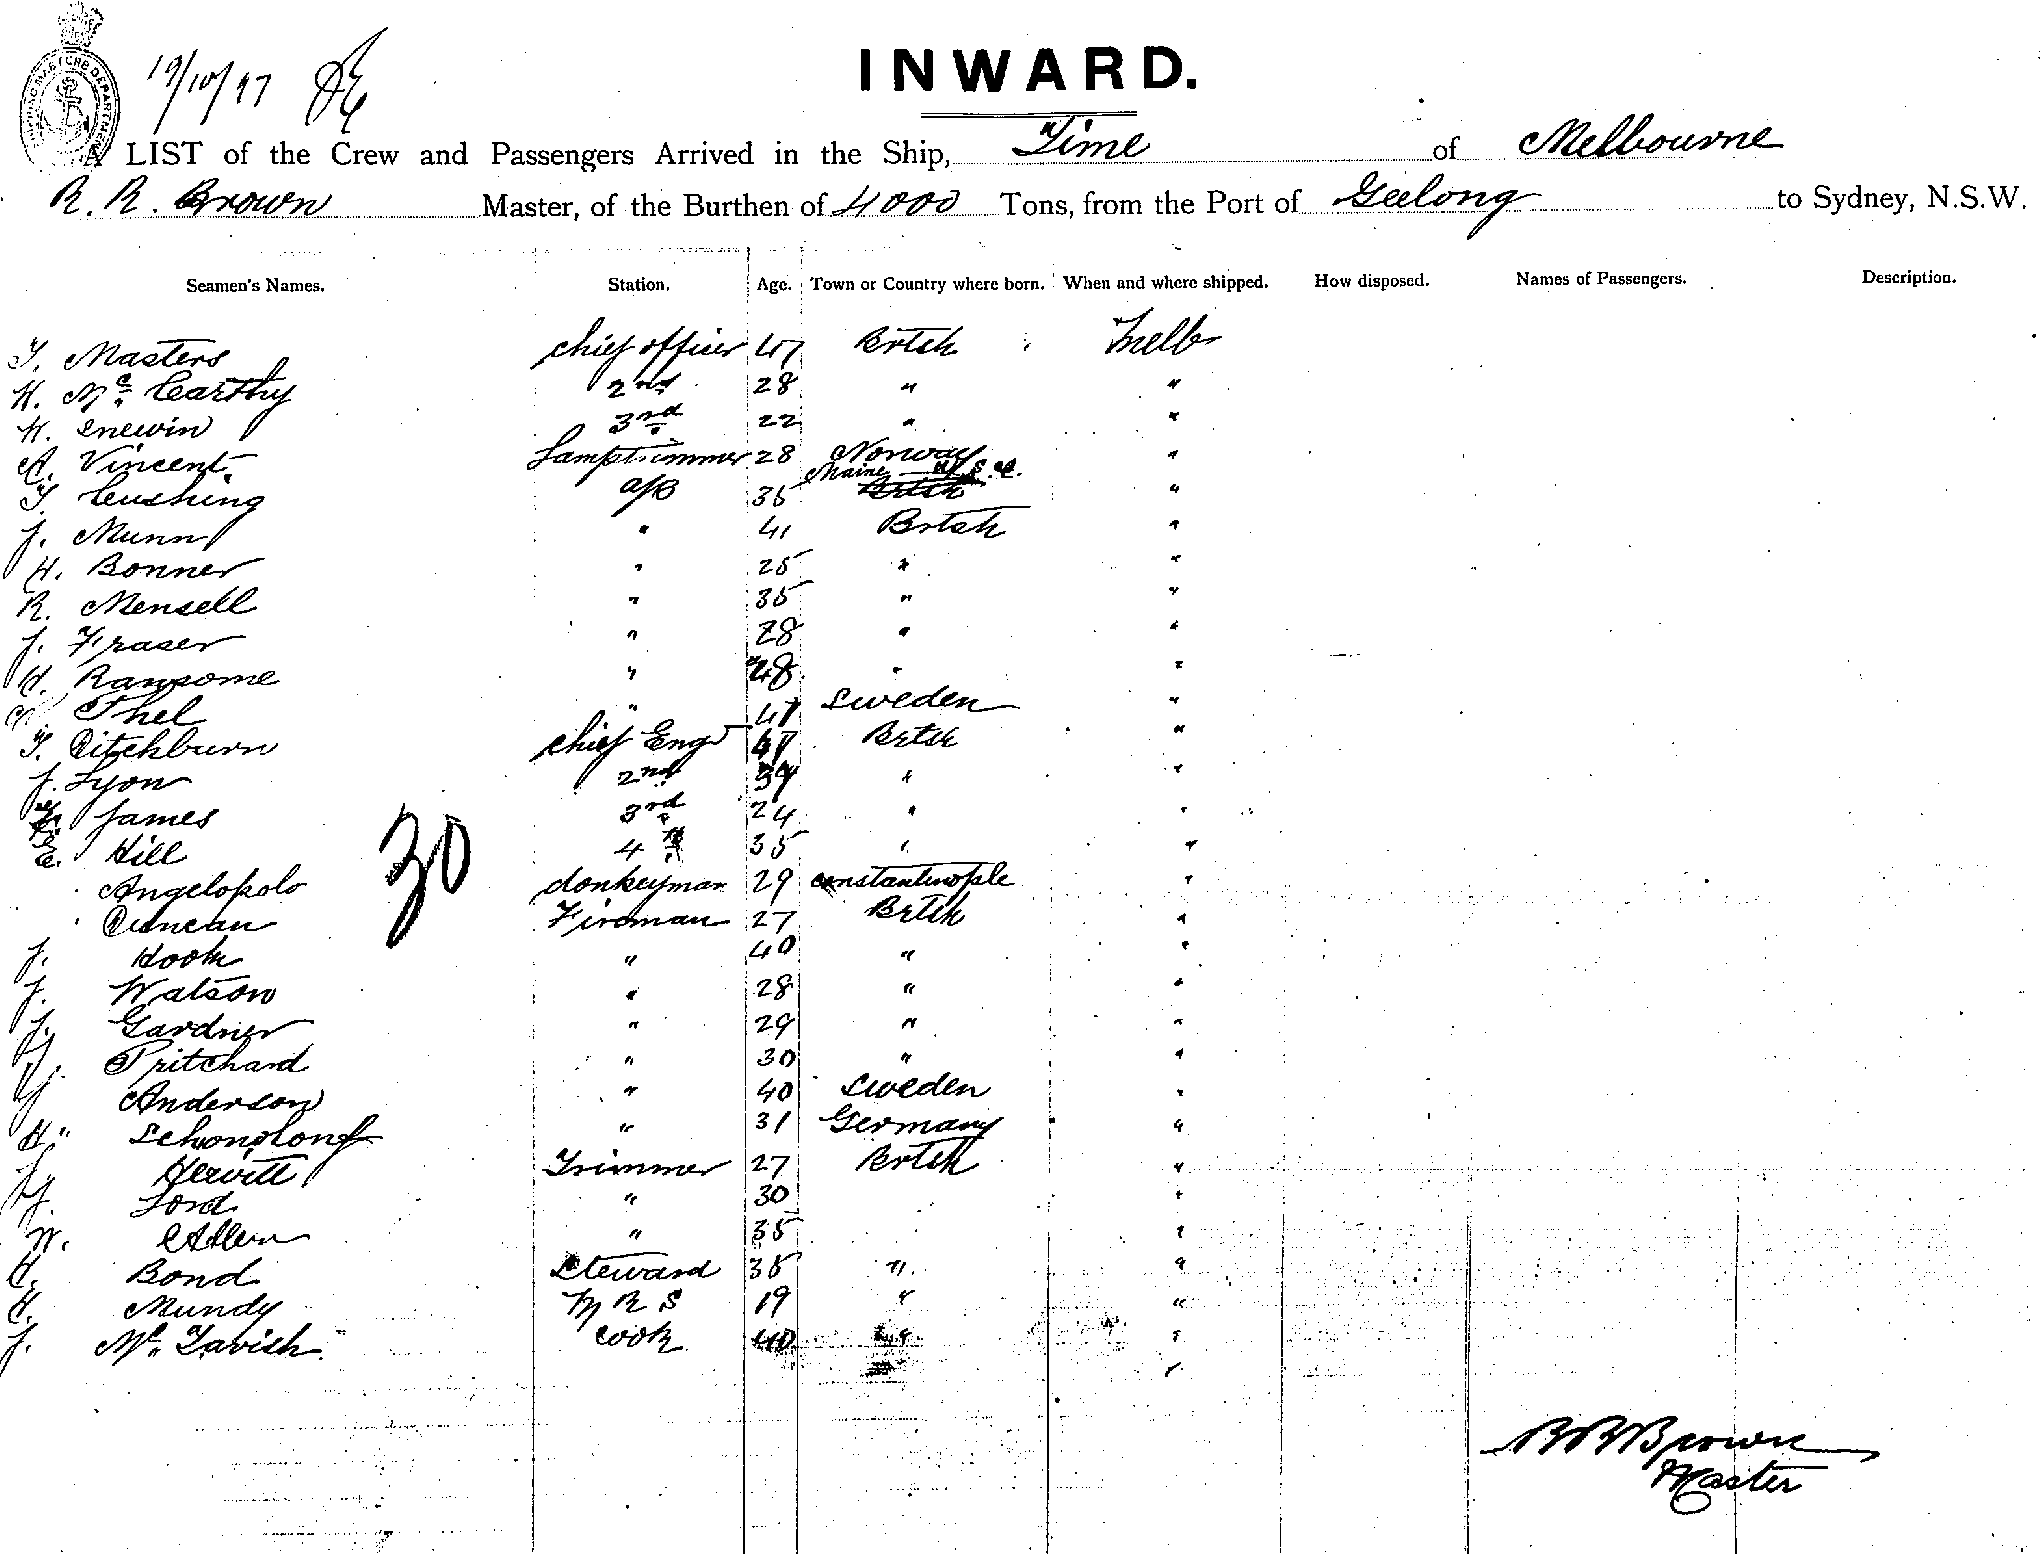 19/10/97
INWARD.
A LIST of the Crew and Passengers Arrived in the Ship, Time of Melbourne
R. R. Brown Master, of the Burthen of 4000 Tons, from the Port of Geelong to Sydney, N.S.W.
Seamen's Names. Station. Age. Town or Country where born. When and where shipped. How disposed. Names of Passengers. Description.
T. Masters chief officer 47 Brtsh Melb
H. Mc Carthy 2nd 28 " "
H. Snewin 3rd 22 " "
A. Vincent Lamptrimmer 28 Norway "
Maine U.S.A.
T. Cushing a/B 35 Brtsh "
J. Munn " 41 Brtsh "
H. Bonner " 25 " "
R. Mensell " 35 " "
J. Fraser " 28 " "
H. Ransome " 48 " "
Thel " 47 Sweden "
T. Ditchburn chief Engr Brtsh "
J. Lyon 2nd 39 " "
James 3rd 24 " "
E. Hill 4th 35 " "
30
Angelopolo donkeyman 29 Constantinople "
Duncan Fireman 27 Brtsh "
J. Hook " 40 " "
J. Watson " 28 " "
J. Gardner " 29 " "
Pritchard " 30 " "
Anderson " 40 Sweden "
H. " 31 Germany "
Hewitt Trimmer 27 Brtsh "
Lord " 30 "
W. Allen " 35 "
H. Bond Steward 35 " "
H. Mundy M R S 19 " "
J. Mc Tavish cook 40 " "
R R Brown
Master